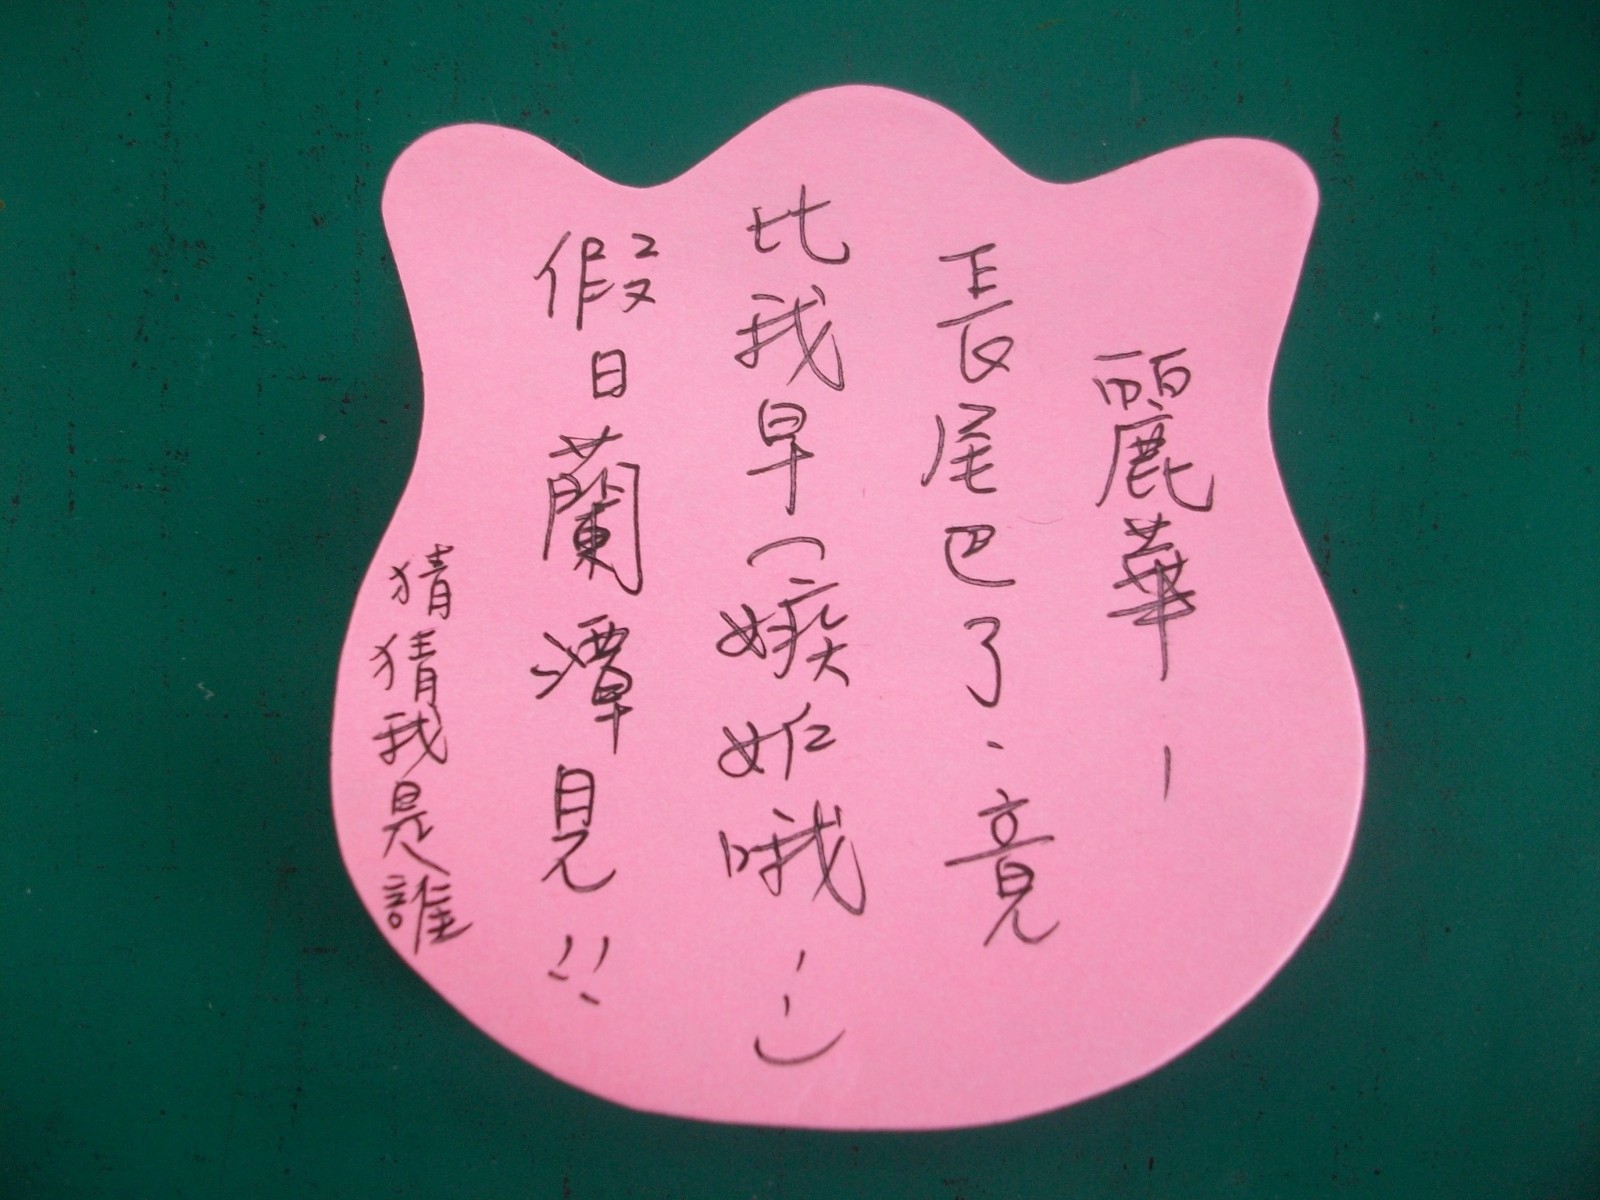 麗華－－
長尾巴了．竟
比我早（嫉妒哦－－）
假日蘭潭見！！
猜猜我是誰